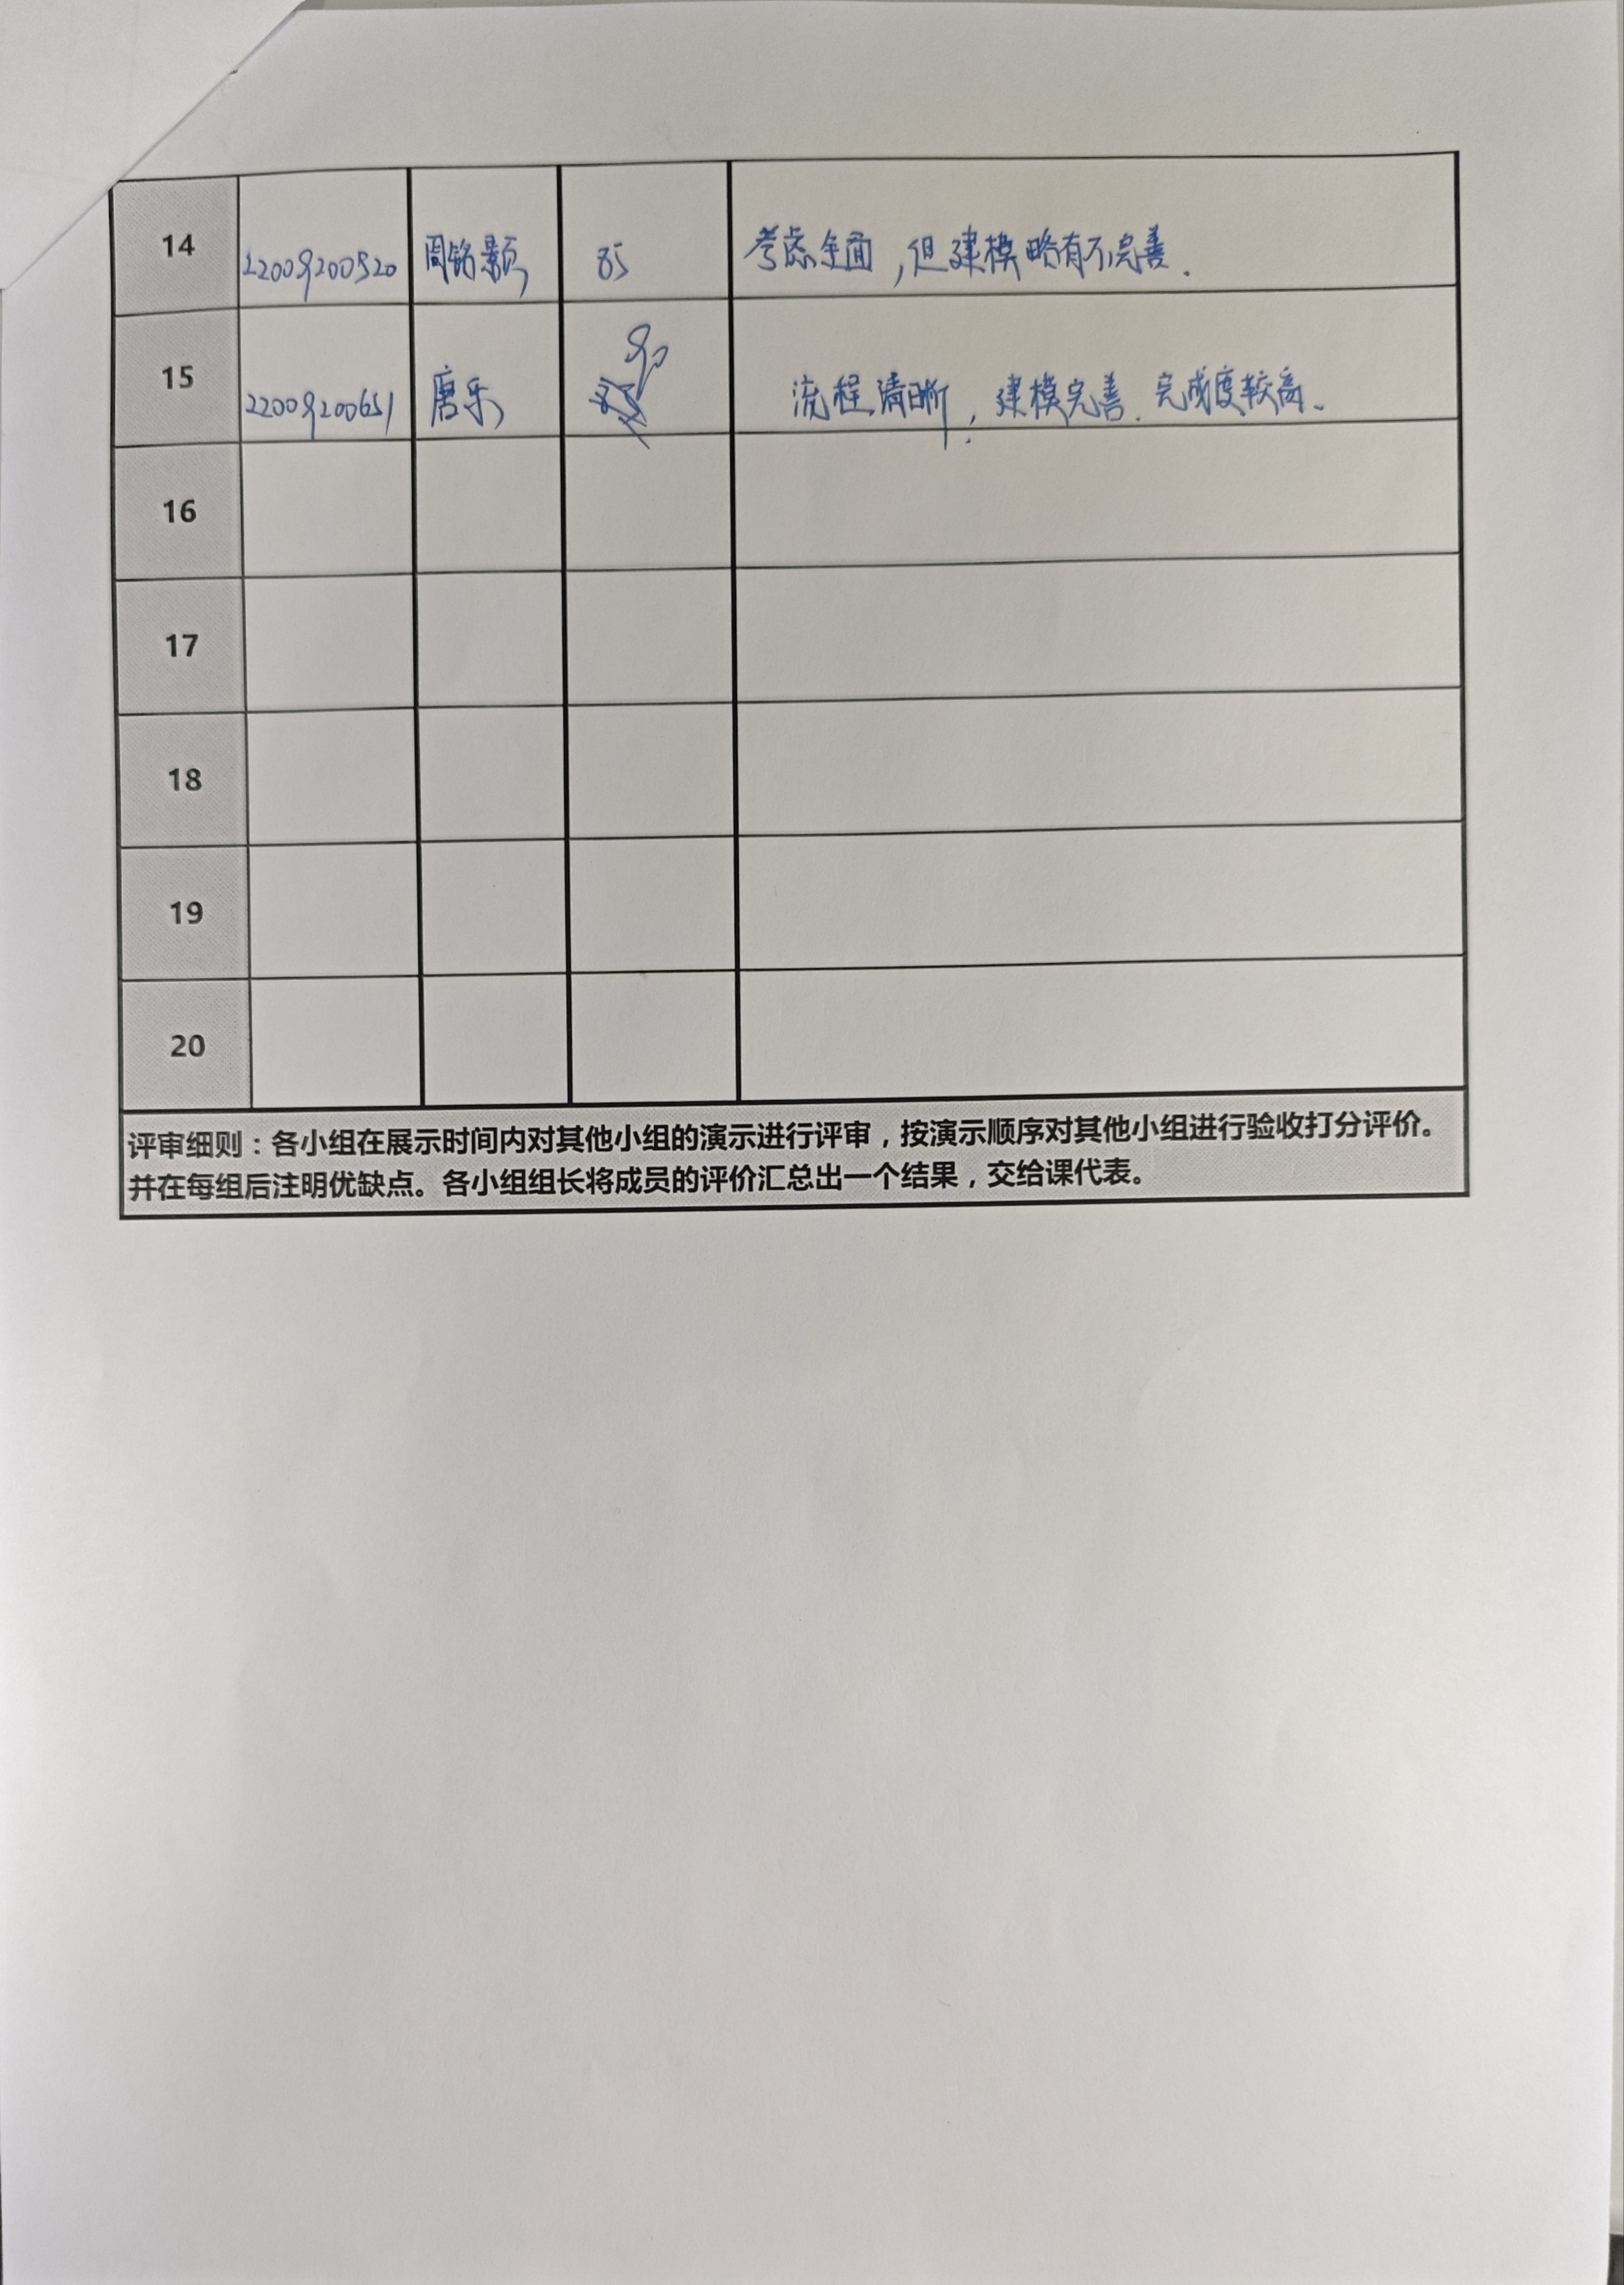 14 22009200520 周铭颢 85 考虑全面，但建模略有不完善.
15 22009200651 唐乐 90 流程清晰，建模完善.完成度较高.
16
17
18
19
20
评审细则：各小组在展示时间内对其他小组的演示进行评审，按演示顺序对其他小组进行验收打分评价。
并在每组后注明优缺点。各小组组长将成员的评价汇总出一个结果，交给课代表。